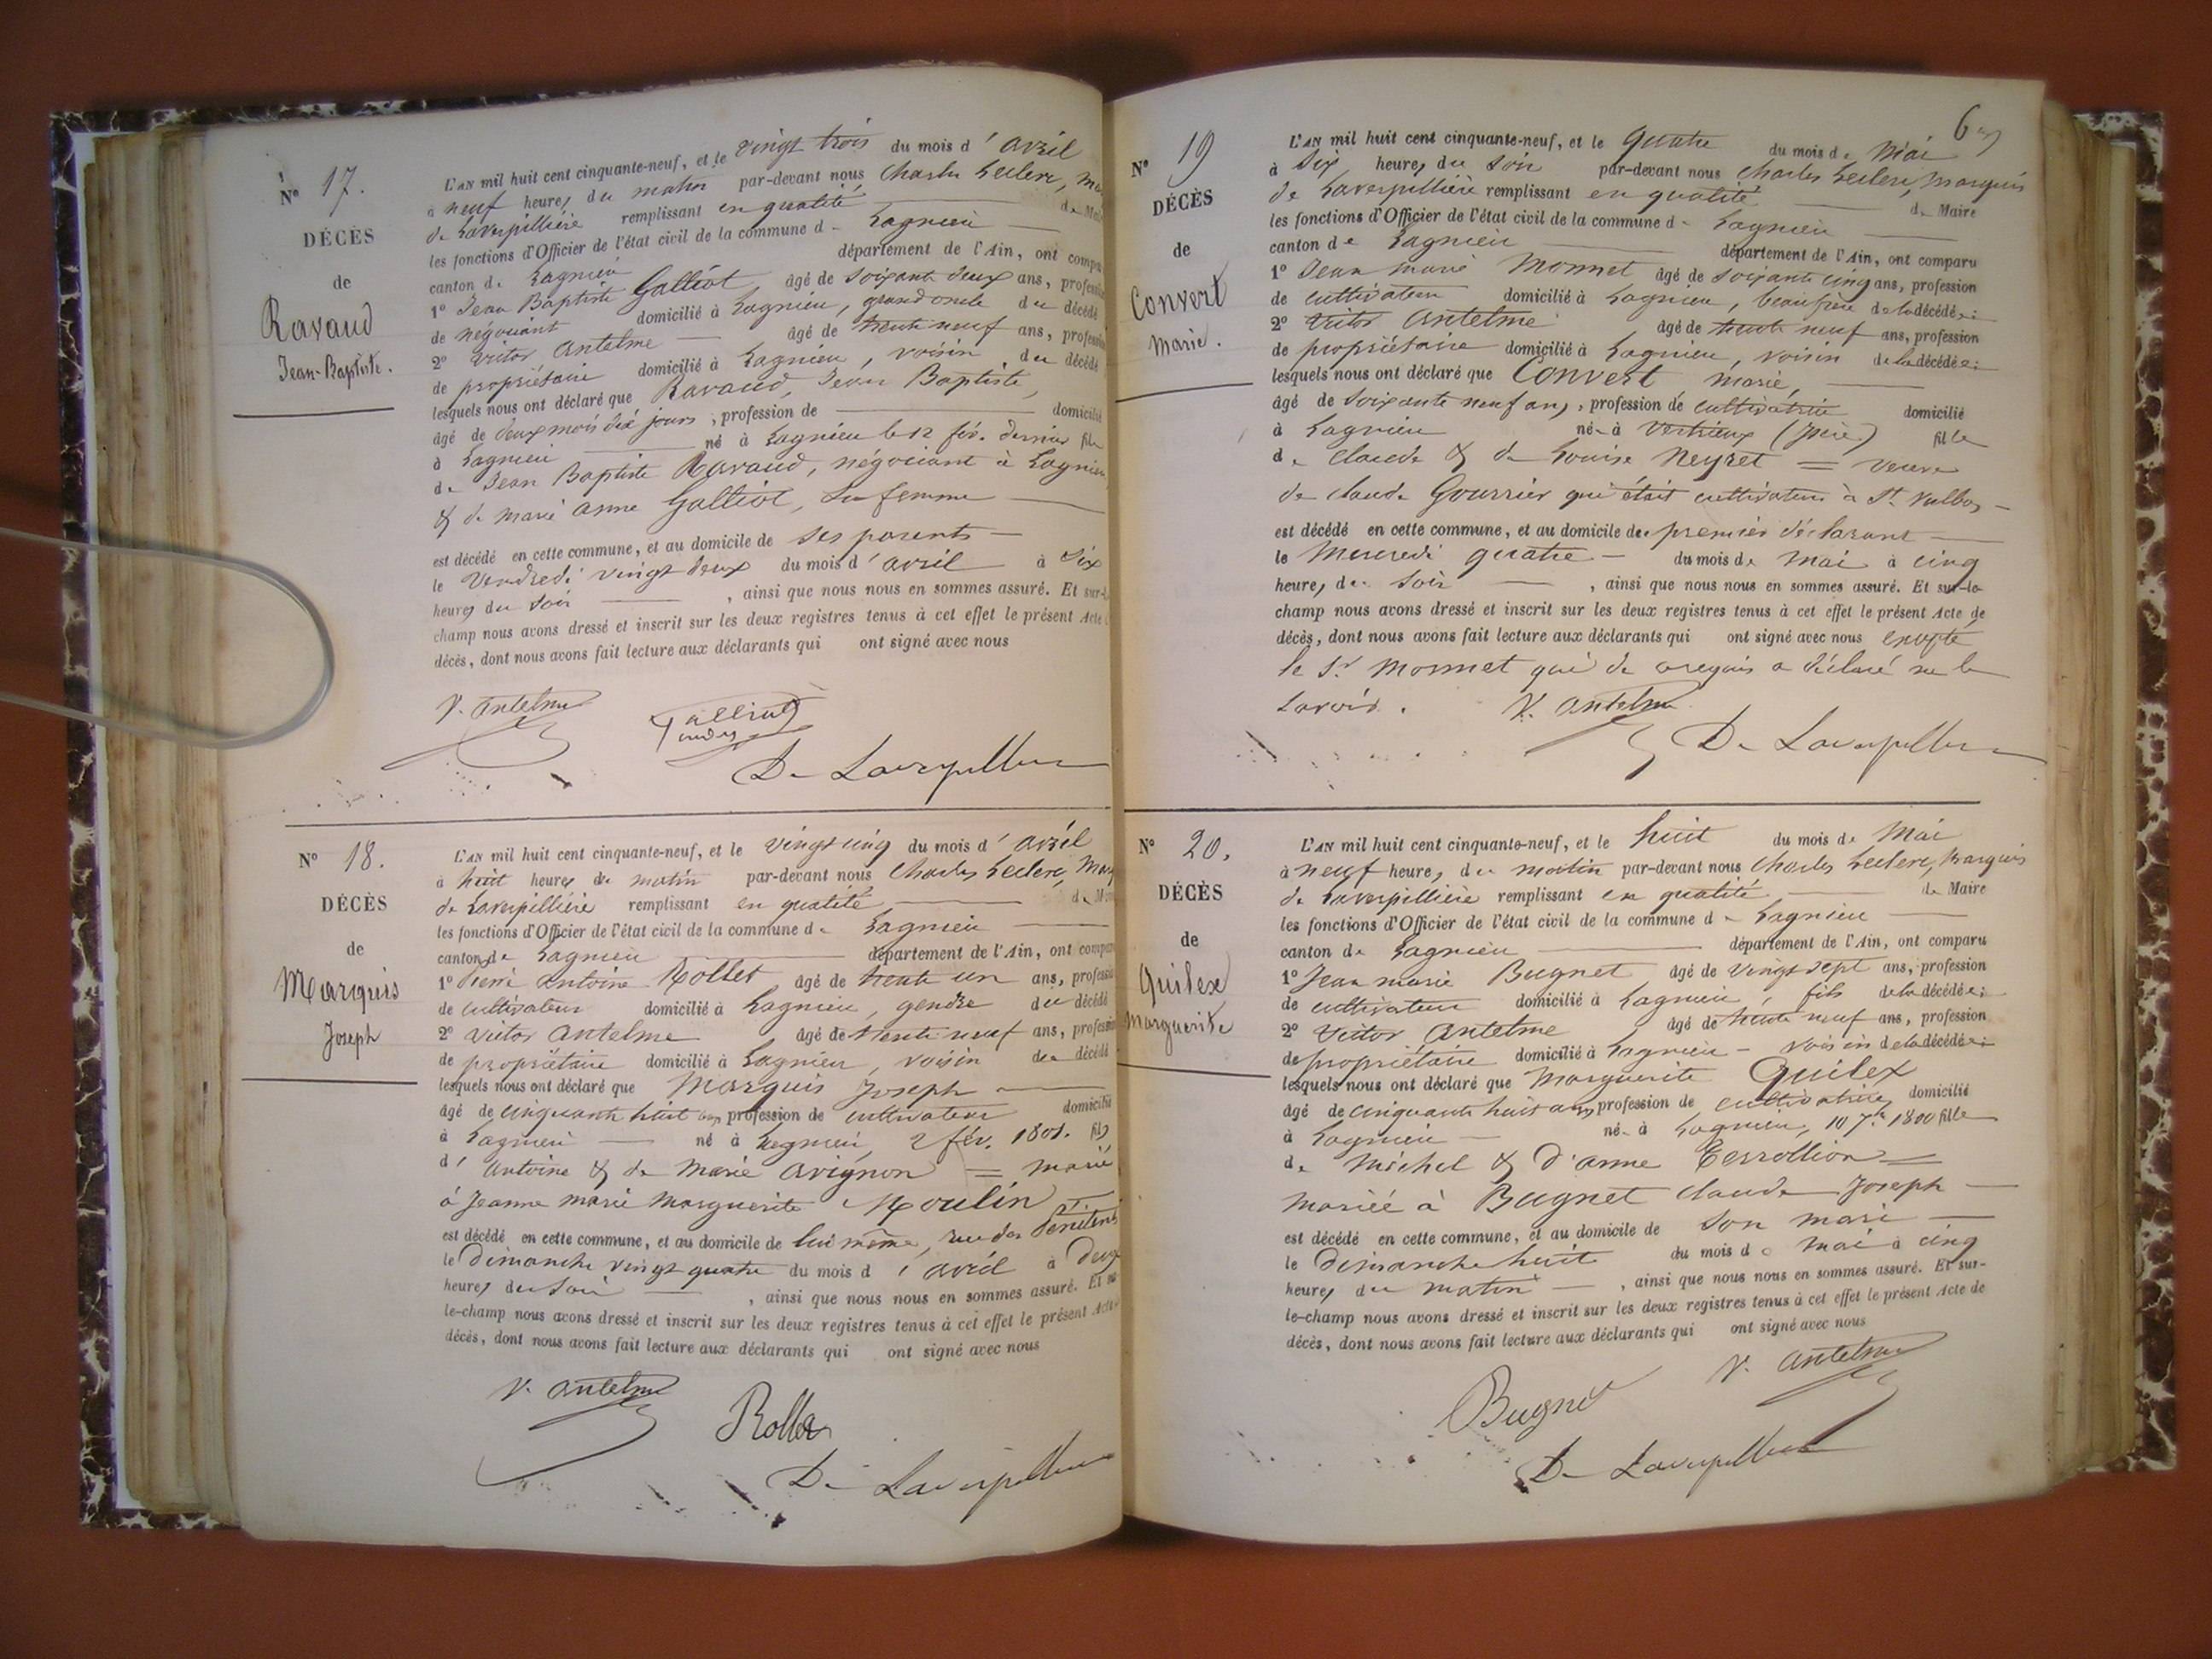 N° 17.
DÉCÈS
de
Ravaud
Jean-Baptiste.
L'AN mil huit cent cinquante-neuf, et le vingt trois du mois d'avril
à neuf heures du matin par-devant nous Charles Leclerc,
de Laverpillière remplissant en qualité de
les fonctions d'Officier de l'état civil de la commune de Lagnieu
canton de Lagnieu département de l'Ain, ont
1° Jean Baptiste Galliot âgé de soixante deux ans,
de négociant domicilié à Lagnieu, grand oncle du décédé
2° Victor Antelme âgé de trente neuf ans,
de propriétaire domicilié à Lagnieu, voisin du décédé
lesquels nous ont déclaré que Ravaud, Jean Baptiste,
âgé de deux mois dix jours, profession de domicilié
à Lagnieu né à Lagnieu le 12 fév. dernier fils
de Jean Baptiste Ravaud, négociant à Lagnieu
& de marie anne Galliot, sa femme
est décédé en cette commune, et au domicile de ses parents
le Vendredi vingt deux du mois d'avril à six
heures du soir, ainsi que nous nous en sommes assuré. Et
champ nous avons dressé et inscrit sur les deux registres tenus à cet effet le présent Acte
décès, dont nous avons fait lecture aux déclarants qui ont signé avec nous
V. Antelme
De Laverpillière
N° 18.
DÉCÈS
de
Marquis
Joseph
L'AN mil huit cent cinquante-neuf, et le vingt cinq du mois d'avril
à huit heures du matin par-devant nous Charles Leclerc,
de Laverpillière remplissant en qualité de
les fonctions d'Officier de l'état civil de la commune de Lagnieu
canton de Lagnieu département de l'Ain, ont
1° Pierre Antoine Rollet âgé de trente un ans,
de cultivateur domicilié à Lagnieu, gendre du décédé
2° Victor Antelme âgé de trente neuf ans,
de propriétaire domicilié à Lagnieu, voisin du décédé
lesquels nous ont déclaré que Marquis Joseph
âgé de cinquante huit ans profession de cultivateur domicilié
à Lagnieu né à Lagnieu, 2 fév. 1801. fils
d'Antoine & de Marie Avignon = marié
à Jeanne marie Marguerite Moulin
est décédé en cette commune, et au domicile de lui même, rue des
le Dimanche vingt quatre du mois d'avril à deux
heures du soir, ainsi que nous nous en sommes assuré. Et
le-champ nous avons dressé et inscrit sur les deux registres tenus à cet effet le présent
décès, dont nous avons fait lecture aux déclarants qui ont signé avec nous
V. Antelme
Rollet
De Laverpillière
N° 19
DÉCÈS
de
Convert
Marie.
L'AN mil huit cent cinquante-neuf, et le quatre du mois de Mai
à six heures du soir par-devant nous Charles Leclerc, Marquis
de Laverpillière remplissant en qualité de Maire
les fonctions d'Officier de l'état civil de la commune de Lagnieu
canton de Lagnieu département de l'Ain, ont comparu
1° Jean marie Monnet âgé de soixante cinq ans, profession
de cultivateur domicilié à Lagnieu, beau frère de la décédée;
2° Victor Antelme âgé de trente neuf ans, profession
de propriétaire domicilié à Lagnieu, voisin de la décédée;
lesquels nous ont déclaré que Convert Marie,
âgé de soixante neuf ans, profession de cultivatrice domicilié
à Lagnieu née à Vertrieux (Isère) fille
de Claude & de Louise Neyret = veuve
de claude Gourrier qui était cultivateur à St. Vulbas
est décédé en cette commune, et au domicile du premier déclarant
le Mercredi quatre du mois de mai à cinq
heures du soir, ainsi que nous nous en sommes assuré. Et sur-le-
champ nous avons dressé et inscrit sur les deux registres tenus à cet effet le présent Acte de
décès, dont nous avons fait lecture aux déclarants qui ont signé avec nous excepté
le Sr. Monnet qui de ce requis a déclaré ne le
savoir.
V. Antelme
De Laverpillière
N° 20.
DÉCÈS
de
Quilex
Marguerite
L'AN mil huit cent cinquante-neuf, et le huit du mois de Mai
à neuf heures du matin par-devant nous Charles Leclerc, Marquis
de Laverpillière remplissant en qualité de Maire
les fonctions d'Officier de l'état civil de la commune de Lagnieu
canton de Lagnieu département de l'Ain, ont comparu
1° Jean marie Bugnet âgé de vingt sept ans, profession
de cultivateur domicilié à Lagnieu, fils de la décédée;
2° Victor Antelme âgé de trente neuf ans, profession
de propriétaire domicilié à Lagnieu - voisin de la décédée;
lesquels nous ont déclaré que Marguerite Quilex
âgé de cinquante huit ans profession de cultivatrice domicilié
à Lagnieu née à Lagnieu, 10 7bre 1800 fille
de Michel & d'anne =
mariée à Bugnet claude Joseph
est décédé en cette commune, et au domicile de son mari
le Dimanche huit du mois de mai à cinq
heures du matin, ainsi que nous nous en sommes assuré. Et sur-
le-champ nous avons dressé et inscrit sur les deux registres tenus à cet effet le présent Acte de
décès, dont nous avons fait lecture aux déclarants qui ont signé avec nous
V. Antelme
Bugnet
De Laverpillière